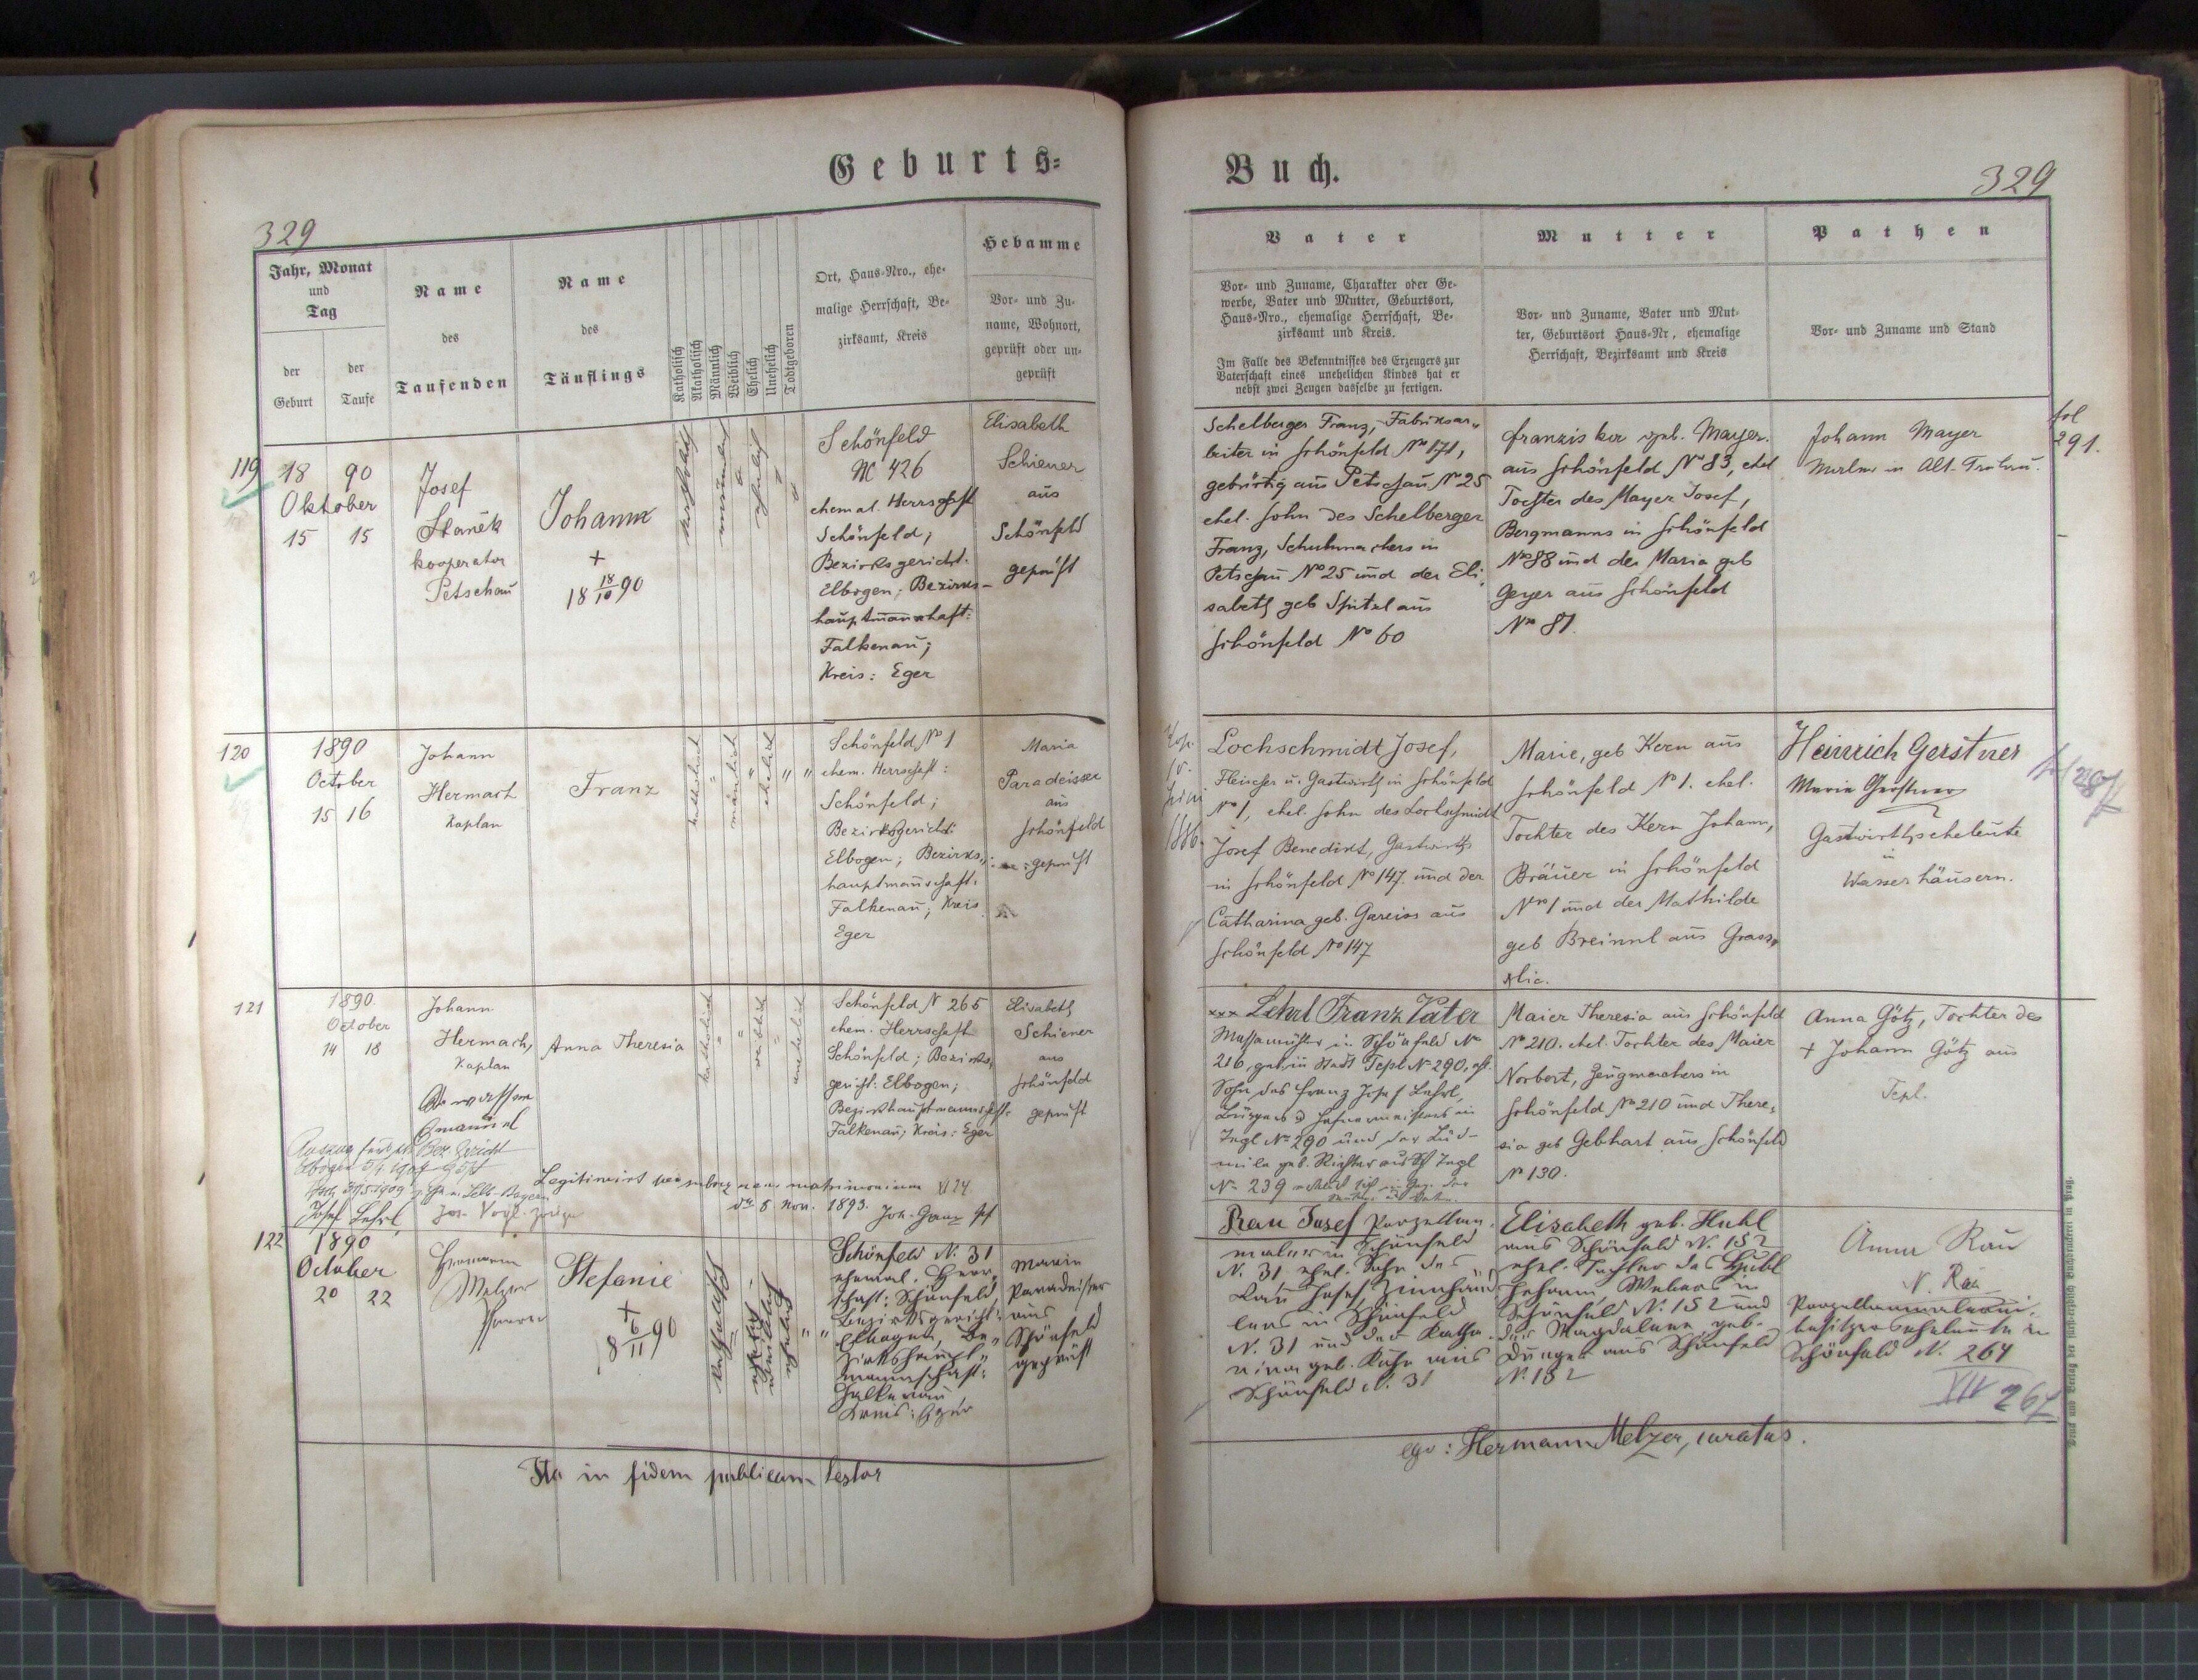 Geburts=
329
Jahr, Monat
und
Tag
der
Geburt
der
Taufe
Name
des
Taufenden
Name
des
Täuflings
Katholisch
Akatholisch
Männlich
Weiblich
Ehelich
Unehelich
Todtgeboren
Ort, Haus-Nro., ehe-
malige Herrschaft, Be-
zirksamt, Kreis
Hebamme
Vor- und Zu-
name, Wohnort,
geprüft oder un-
geprüft
119
18 90
Oktober
15 15
Josef
Staněk
kooperator
Petschau
Johann
+
18 18/10 90
Schönfeld
No 426
ehemal. Herrschaft
Schönfeld;
Bezirksgericht.
Elbogen; Bezirks-
hauptmannschaft:
Falkenau;
Kreis: Eger
Elisabeth
Schiener
aus
Schönfeld
geprüft
120
1890
October
15 16
Johann
Hermach
Kaplan
Franz
katholisch
männlich
ehelich
Schönfeld No 1
ehem. Herrschaft:
Schönfeld;
Bezirksgericht:
Elbogen; Bezirks-
hauptmannschaft:
Falkenau; Kreis
Eger
Maria
Paradeisser
aus
Schönfeld
geprüft
121
1890.
October
14 18
Johann
Hermach,
Kaplan
Anna Theresia
katholisch
weiblich
unehelich
Schönfeld N 265
ehem. Herrschaft
Schönfeld; Bezirks-
gericht: Elbogen;
Bezirkshauptmannschaft:
Falkenau; Kreis: Eger
Elisabeth
Schiener
aus
Schönfeld
geprüft
Legitimirt per subseq uens matrimonium
dto 8 Nov. 1893.
Josef Lehrl
122
1890
October
20 22
Hermann
Melzer
Pfarrer
Stefanie
+
18 6/11 90
Schönfeld N. 31
ehemal. Herr-
schaft: Schönfeld,
Bezirksgericht:
Elbogen, Be-
zirkshaupt-
mannschaft:
Falkenau
Kreis: Eger
Maria
Paradeisser
aus
Schönfeld
geprüft
Ita in fidem publicam testor
Buch.
329
Vater
Vor- und Zuname, Charakter oder Ge-
werbe, Vater und Mutter, Geburtsort,
Haus-Nro., ehemalige Herrschaft, Be-
zirksamt und Kreis.
Im Falle des Bekenntnisses des Erzeugers zur
Vaterschaft eines unehelichen Kindes hat er
nebst zwei Zeugen dasselbe zu fertigen.
Mutter
Vor- und Zuname, Vater und Mut-
ter, Geburtsort Haus-Nr, ehemalige
Herrschaft, Bezirksamt und Kreis
Pathen
Vor- und Zuname und Stand
Schelberger Franz, Fabriksar-
beiter in Schönfeld No 171,
gebürtig aus Petschau No 25
ehel. Sohn des Schelberger
Franz, Schuhmachers in
Petschau No 25 und der Eli-
sabeth geb Spitzl aus
Schönfeld No 60
Franziska geb. Mayer.
aus Schönfeld No 83, ehel
Tochter des Mayer Josef,
Bergmanns in Schönfeld
No 88 und der Maria geb
Geyer aus Schönfeld
No 81.
Johann Mayer
in Alt-
fol
291.
Lochschmidt Josef,
Fleischer u. Gastwirth in Schönfeld
No 1, ehel. Sohn des Lochschmidt
Josef Benedikt, Gastwirths
in Schönfeld No 147 und der
Catharina geb. Gareiss aus
Schönfeld No 147
Marie, geb Kern aus
Schönfeld No 1. ehel.
Tochter des Kern Johann,
Bräuer in Schönfeld
No 1 und der Mathilde
geb Breinnl aus Grass-
lic.
Heinrich Gerstner
Maria Gerstner
Gastwirthseheleute
in
Wasserhäusern.
fol 287
Lehrl Franz Vater
in Schönfeld No
216, geb. in Stadt Tepl No 290, ehl.
Sohn des Franz Josef Lehrl,
Bürgers u Hafnermeisters in
Tepl No 290 und der Lud-
mila geb. Richter aus St Tepl
No 239
Maier Theresia aus Schönfeld
No 210. ehel. Tochter des Maier
Norbert, Zeugmachers in
Schönfeld No 210 und There-
sia geb Gebhart aus Schönfeld
No 130.
Anna Götz, Tochter des
+ Johann Götz aus
Tepl.
Rau Josef Porzellan-
maler in Schönfeld
N. 31 ehel. Sohn des
Rau Josef,
in Schönfeld
N. 31 und der Katha-
rina geb. aus
Schönfeld N. 31
Elisabeth geb. Huhl
aus Schönfeld N. 152
ehel. Tochter des Huhl
Johann, Webers in
Schönfeld N. 152 und
der Magdalena geb.
aus Schönfeld
N. 152
Anna Rau
Schönfeld N. 264
XIV 267
ego: Hermann Melzer, curatus.